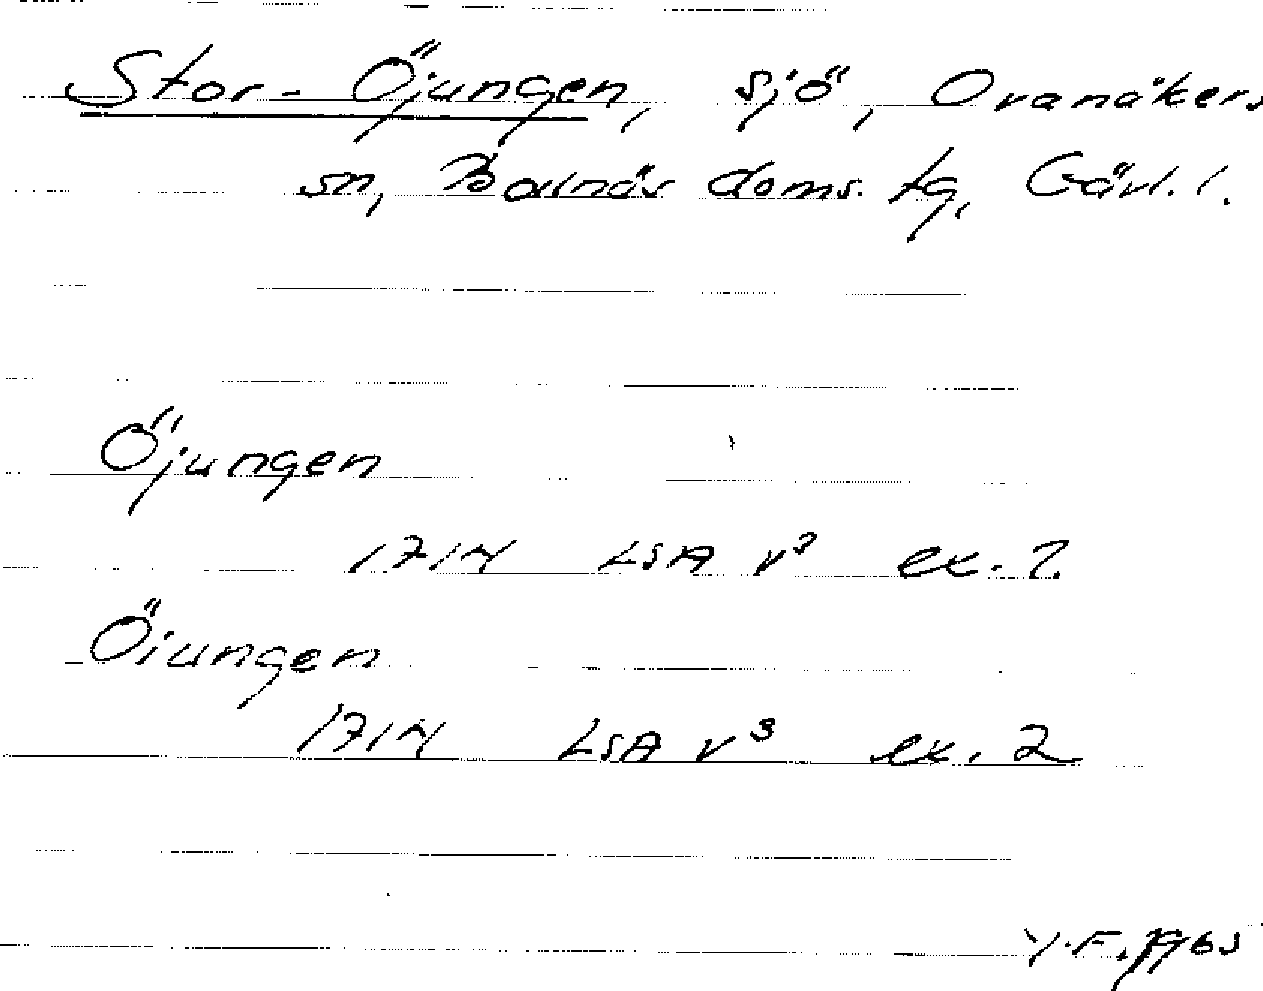 Stor-Öjungen, sjö, Ovanåkers
sn, Bollnäs doms. tg, Gävl. l.
Öjungen
1714 LSA V³ ex. 1.
Öiungen
1714 LSA V³ ex. 2
Y.F. 1965